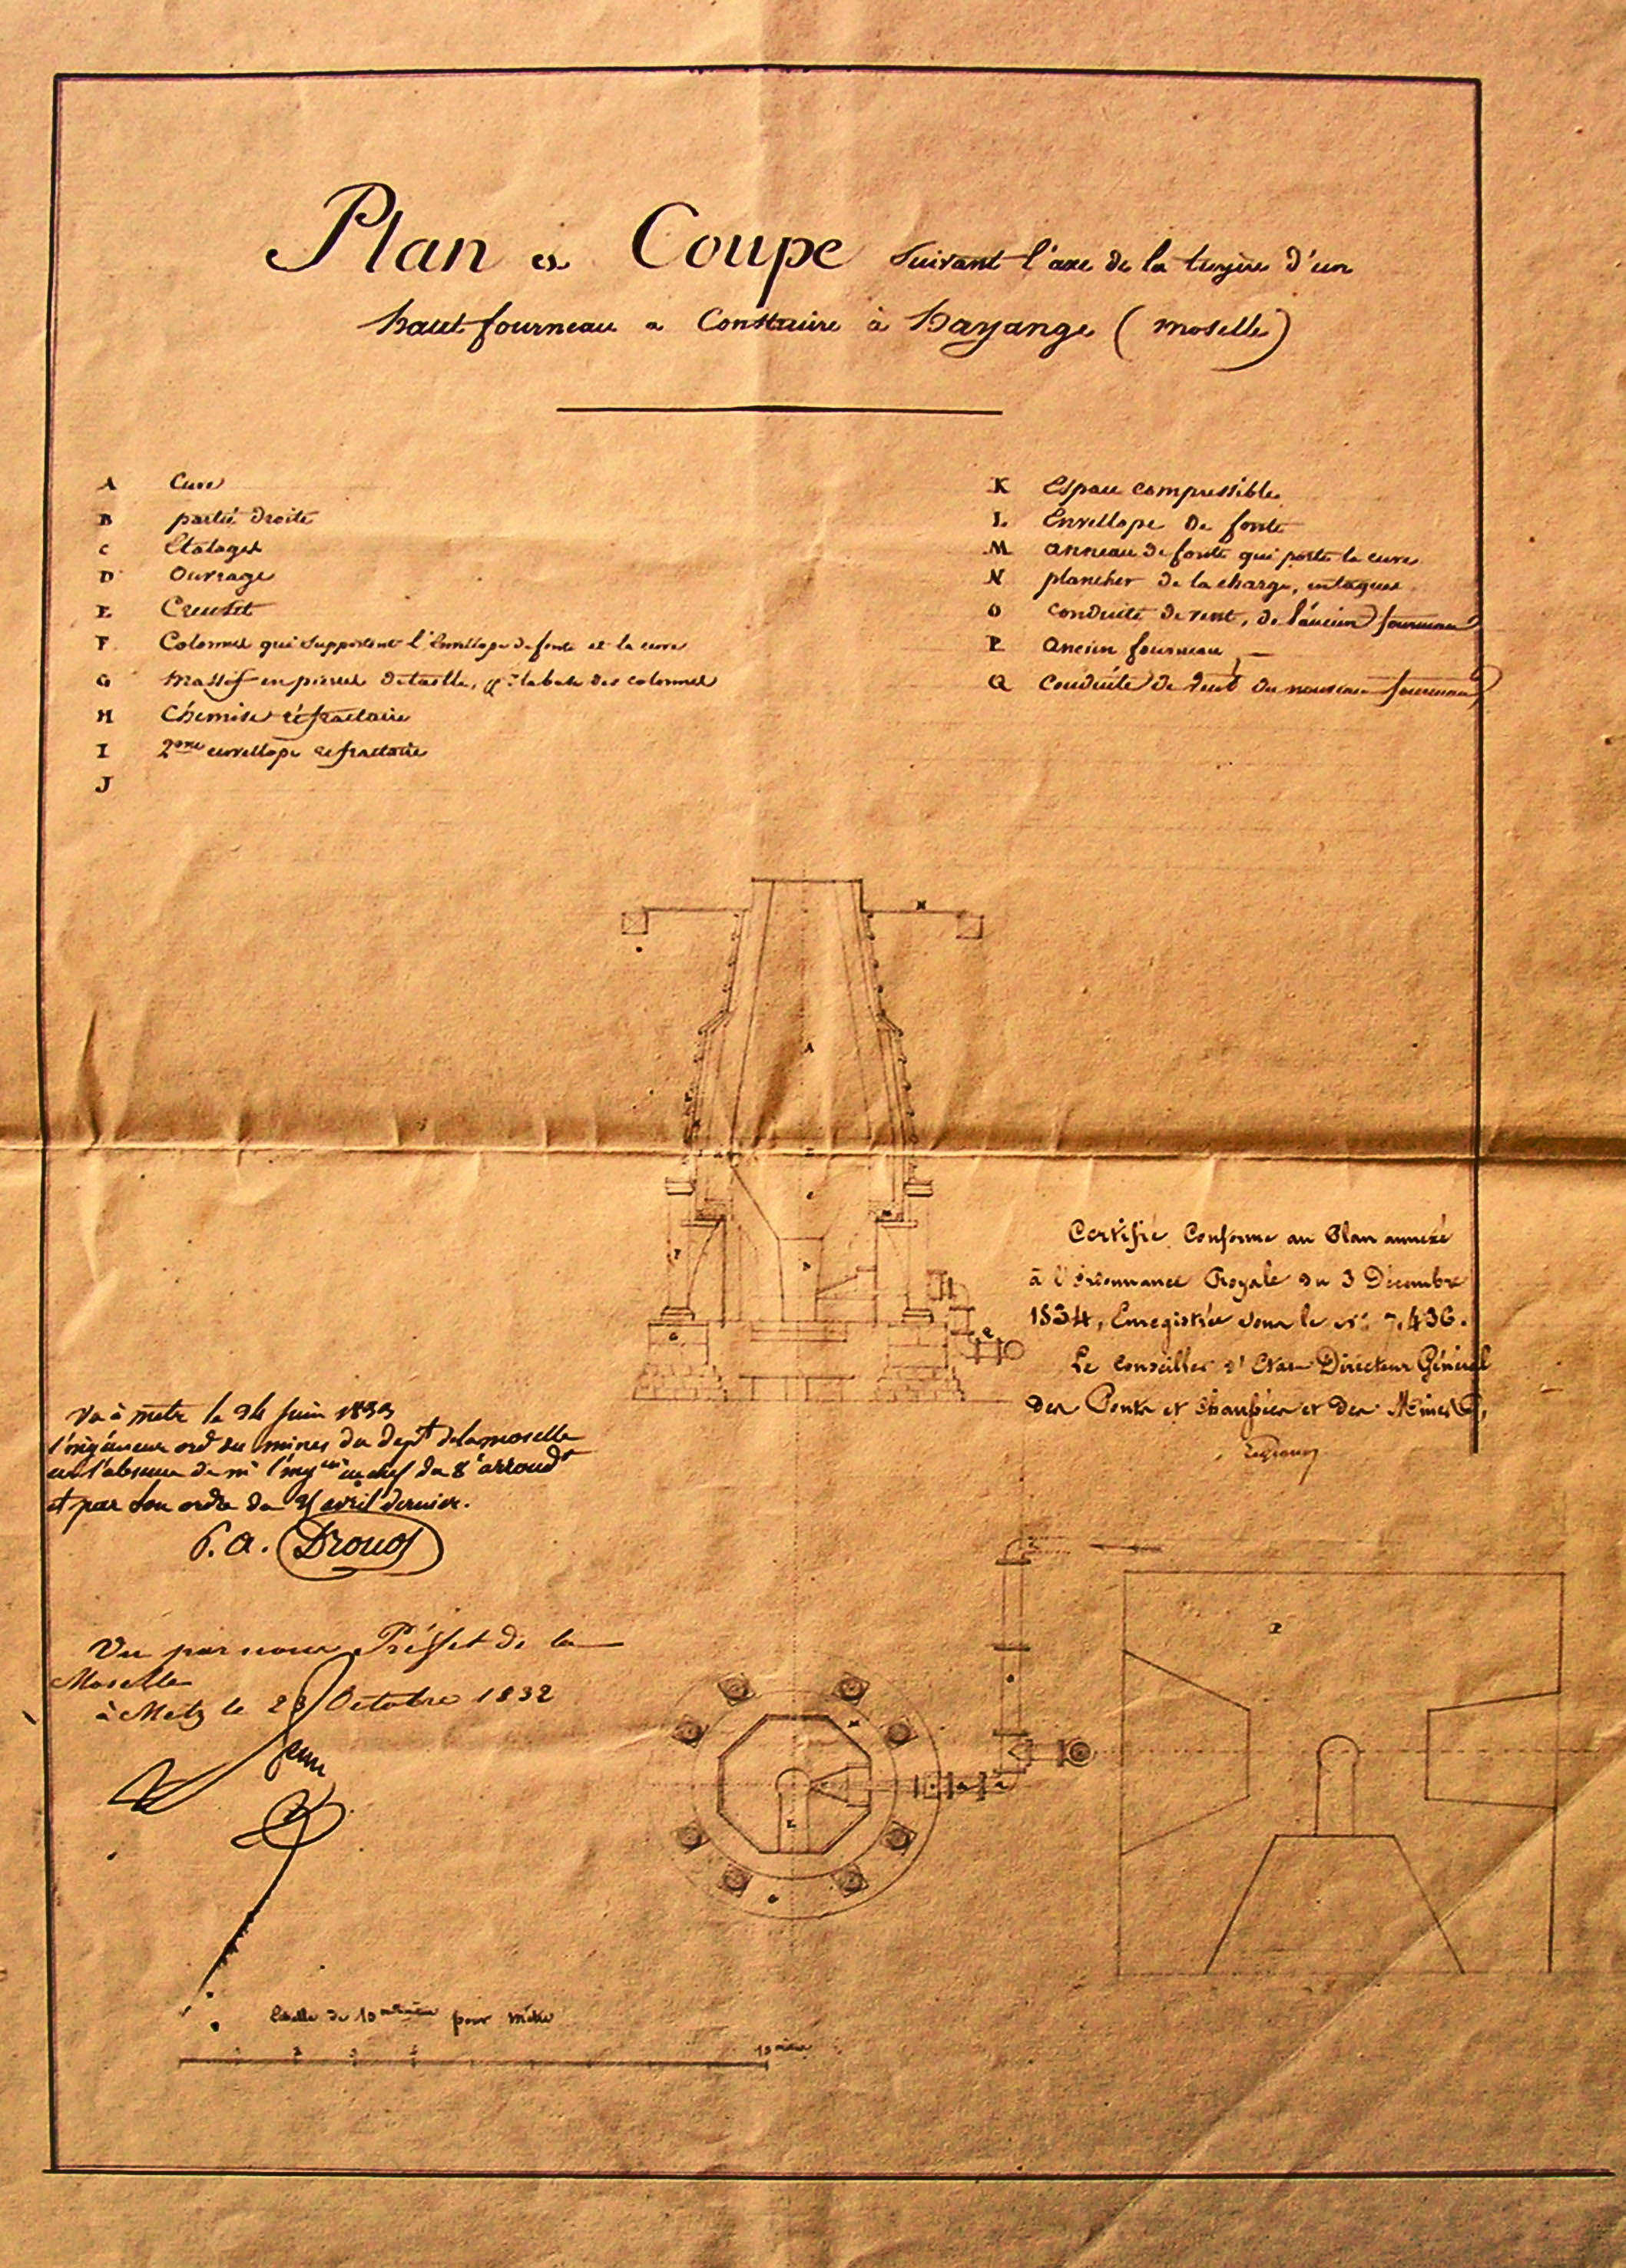 Plan et Coupe suivant l'axe de la tuyère d'un
haut fourneau a Construire à hayange (moselle)
A Cuve
B partie droite
C Etalages
D Ouvrage
E Creuset
F Colonnes qui supportent l'Envellope de fonte et la cuve
G Massif en pierres de taille, pr la base des colonnes
H Chemise réfractaire
I 2eme envellope refractaire
J
K Espace compressible
L Envellope de fonte
M anneau de fonte qui porte la cuve
N plancher de la charge, en taques
O Conduite de vent, de l'ancien fourneau
P Ancien fourneau
Q Conduite de vent du nouveau fourneau
N
A
B
C
M
F
D
G
Q
Certifié Conforme au Plan annexé
à l'Ordonnance Royale du 3 Décembre
1834, Enregistrée sous le n° 7,436.
Le Conseiller d'Etat Directeur Général
des Ponts et Chaussées et des Mines,
Legrand
Vu à metz le 24 juin 1833
l'ingénieur ord des mines du dept de la moselle
en l'absence de mr l'ing en chef du 8e arrondt
et par son ordre du avril dernier.
P. A. Drouot
P
Vu par nous Préfet de la
Moselle
à Metz le 28 Octobre 1832
E
G
Echelle de 10 millimètres pour mètre
1 2 3 4 10 mètres